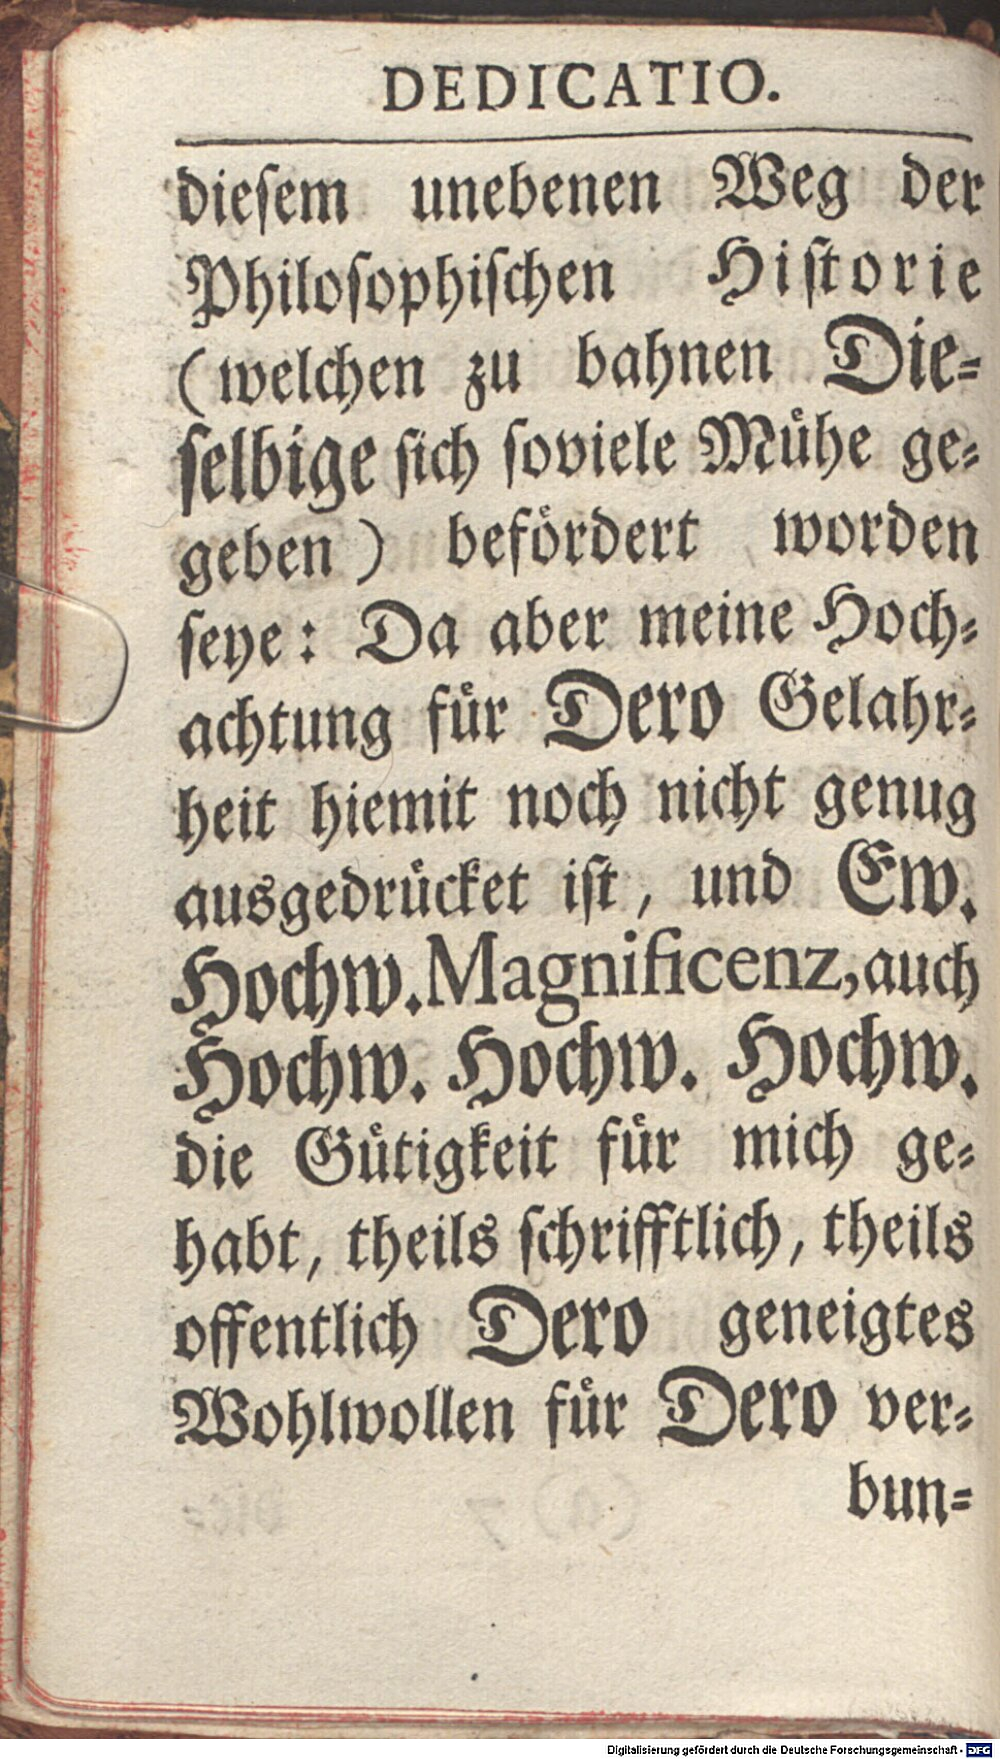 DEDICATIO.
dieſem unebenen Weg der
Philoſophiſchen Hiſtorie
(welchen zu bahnen Die⸗
ſelbige ſich ſoviele Mühe ge⸗
geben) befördert worden
ſeye: Da aber meine Hoch⸗
achtung für Dero Gelahr⸗
heit hiemit noch nicht genug
ausgedrücket iſt, und Ew.
Hochw. Magnificenz, auch
Hochw. Hochw. Hochw.
die Gütigkeit für mich ge⸗
habt, theils ſchrifftlich, theils
offentlich Dero geneigtes
Wohlwollen für Dero ver⸗
bun⸗
Digitalisierung gefördert durch die Deutsche Forschungsgemeinschaft - DFG